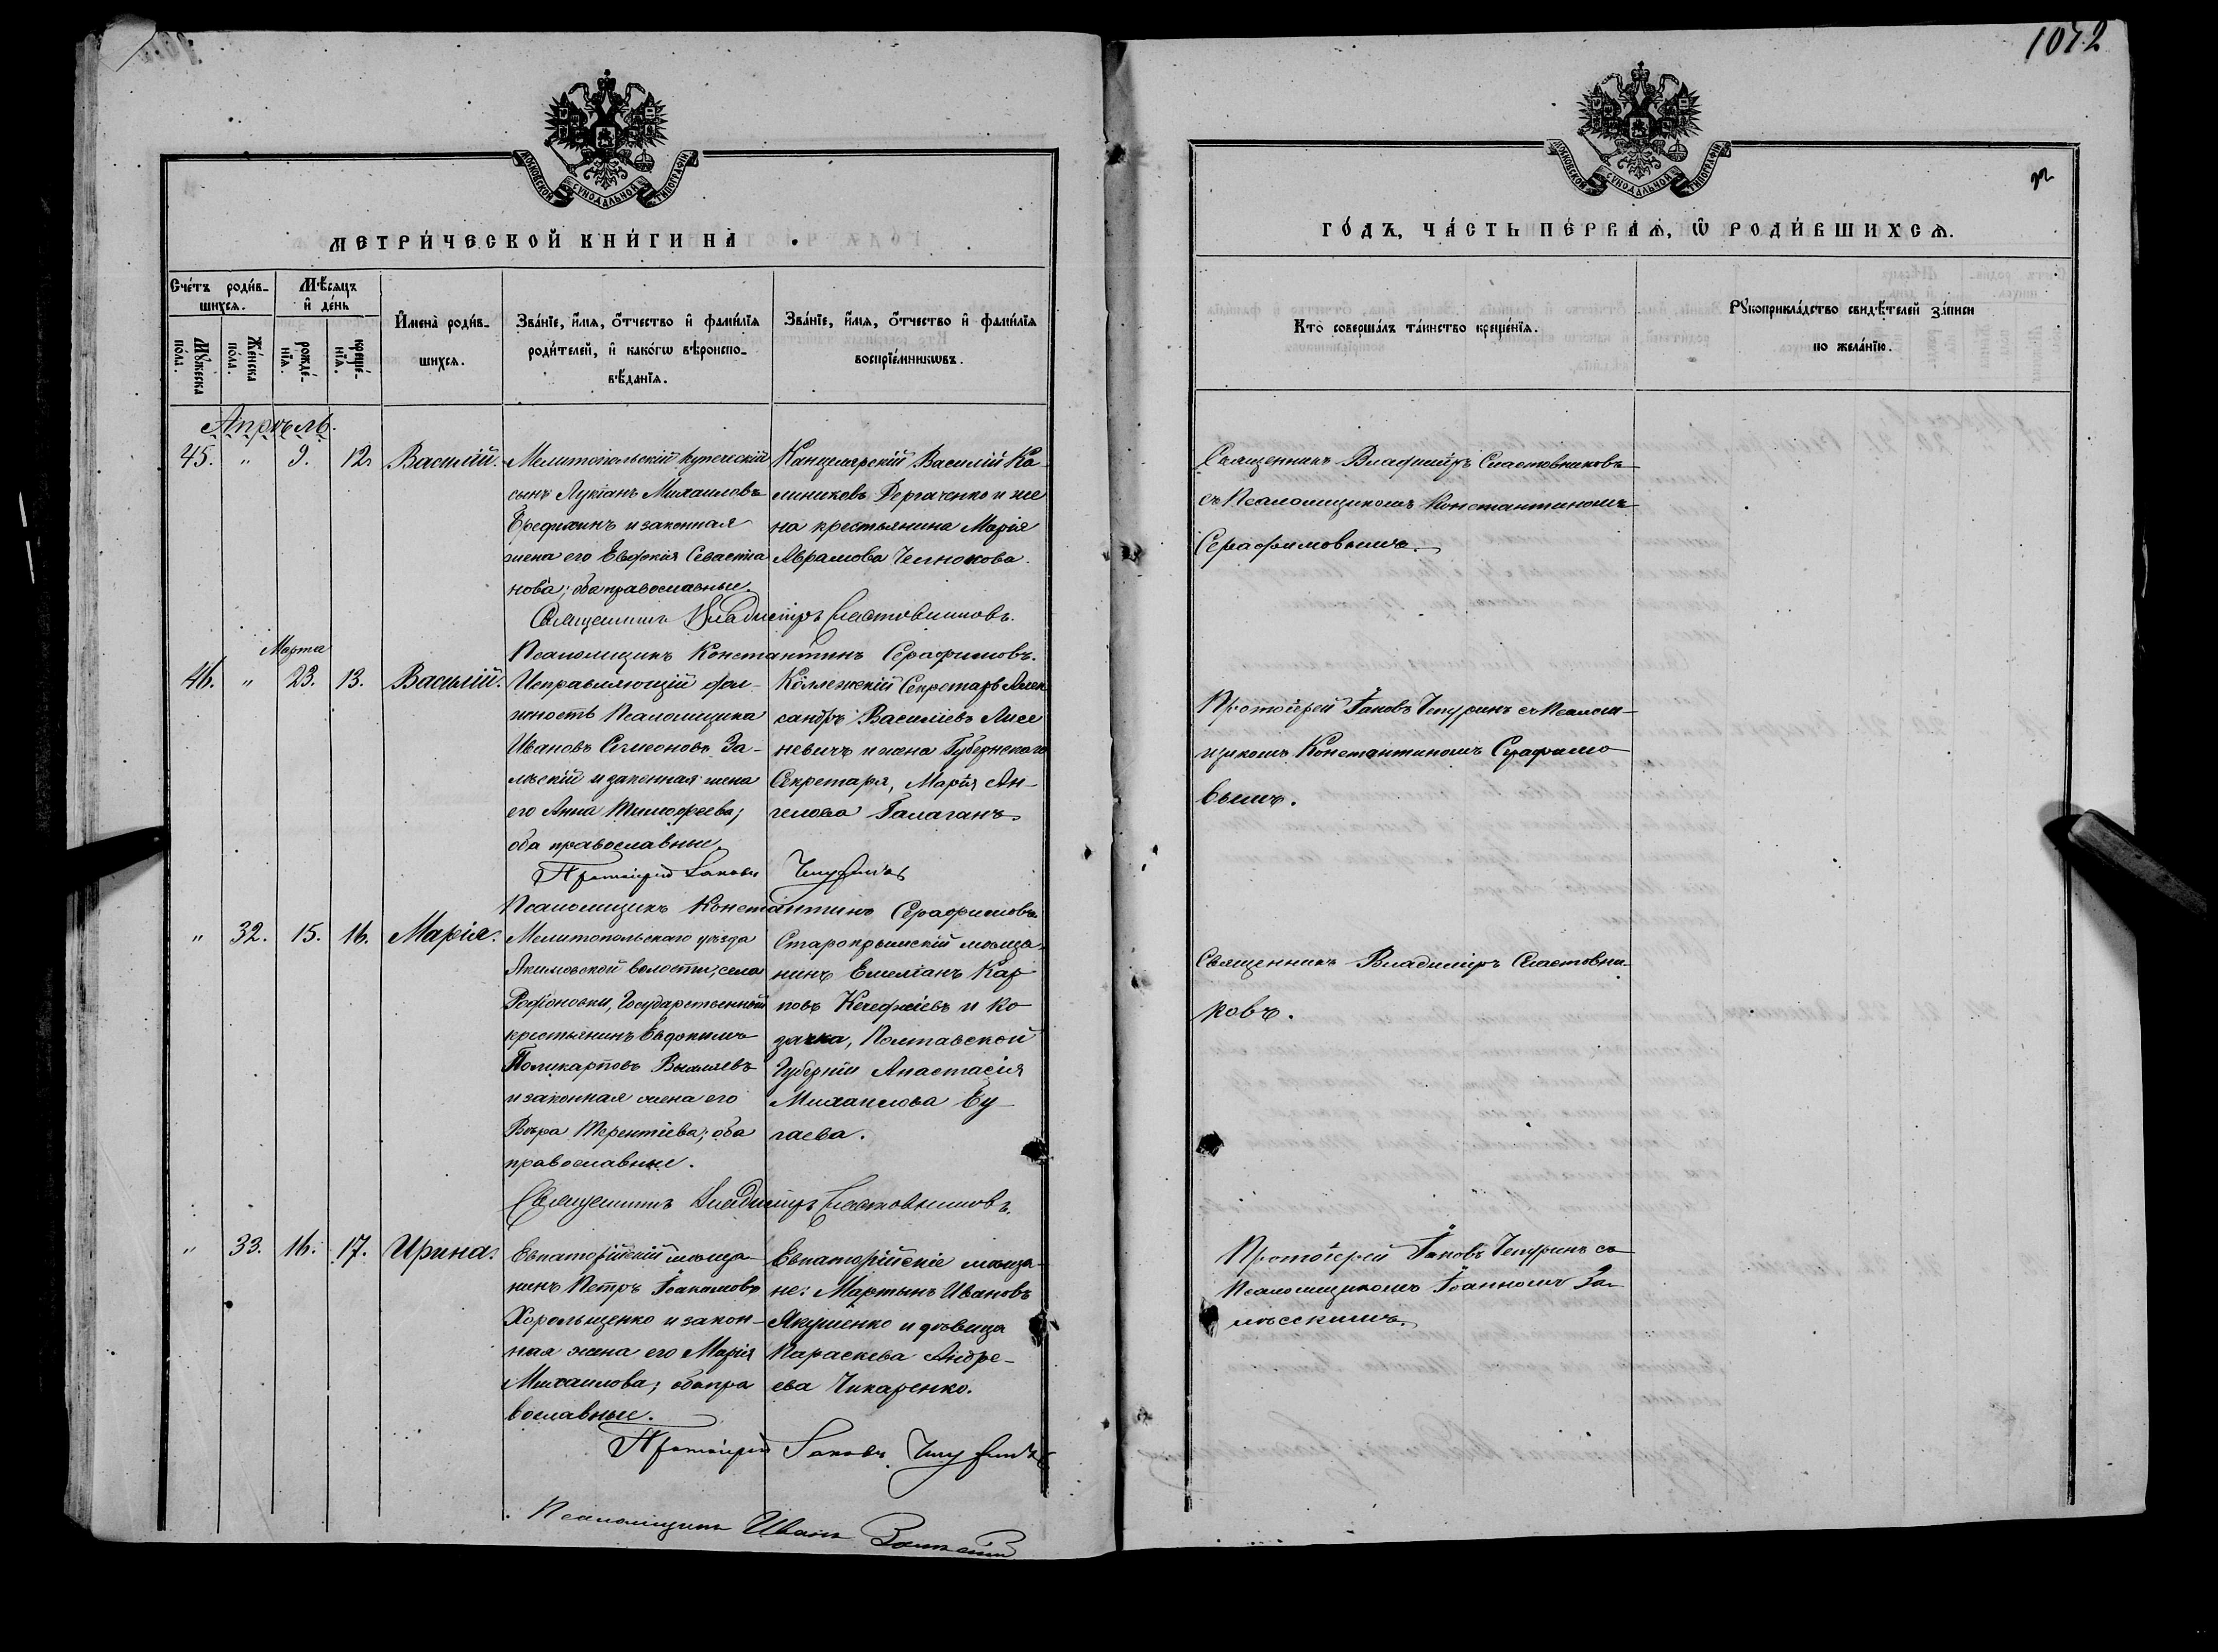 1072
МОСКОВСКОЙ СѴНОДАЛЬНОЙ ТИПОГРАФІИ
МЕТРИ́ЧЕСКОЙ КНИ́ГИ НА
Сче́тъ роди́в-
шихсѧ.
Мѣ́сѧцъ
и҆ де́нь
Мꙋ́жеска по́ла.
Же́нска по́ла.
рожде́-нїѧ.
креще́-нїѧ.
И҆мена̀ роди́в-
шихсѧ.
Зва́нїе, и҆́мѧ, о҆́тчество и҆ фами́лїѧ
роди́телей, и҆ како́гѡ вѣроиспо-
вѣ́данїѧ.
Зва́нїе, и҆́мѧ, о҆́тчество и҆ фами́лїѧ
воспрїе́мникѡвъ.
Апрѣль.
45. " 9. 12. Василій.
Мелитопольскій купеческій
сынъ Лукіанъ Михаиловъ
и законная
жена его Евдокія Севастіа
нова; оба православные.
Канцелярскій Василій Ка
линиковъ Дергаченко и же
на крестьянина Марія
Аврамова Челнокова.
Священникъ Владиміръ Сластовниковъ.
Псаломщикъ Константинъ Серафимовъ.
Марта
46. " 23. 13. Василій.
Исправляющій дол-
жность Псаломщика
Ивановъ Симеоновъ За-
лѣскій и законная жена
его Анна Тимофеева;
оба православные.
Коллежскій Секретарь Алек
сандръ Василіевъ Лисе
невичъ и жена Губернскаго
Секретаря, Марія Ан-
гелова Галаганъ.
Протоіерей Іаковъ Чепуринъ
Псаломщикъ Константинъ Серафимовъ
" 32. 15. 16. Марія.
Мелитопольскаго уѣзда
Акимовской волости, села
Родіоновки, Государственный
крестьянинъ Евдокимъ
Поликарповъ
и законная жена его
Вѣра Терентіева; оба
православные.
Старокрымскій мѣща-
нинъ Емеліанъ Кар
повъ и ко
зачка, Полтавской
Губерніи Анастасія
Михаилова Бу
гаева.
Священникъ Владиміръ Сластовниковъ.
" 33. 16. 17. Ирина.
Евпаторійскій мѣща-
нинъ Петръ Іоакимовъ
Хорольщенко и закон-
ная жена его Марія
Михаилова; оба пра
вославные.
Евпаторійскіе мѣща-
не: Мартынъ Ивановъ
Якушенко и дѣвица
Параскева Андре-
ева Чикаренко.
Протоіерей Іаковъ Чепуринъ
Псаломщикъ Иванъ Залѣскій
МОСКОВСКОЙ СѴНОДАЛЬНОЙ ТИПОГРАФІИ
ГО́ДЪ, ЧА́СТЬ ПЕ́РВАѦ, Ѡ҆ РОДИ́ВШИХСѦ.
Кто̀ соверша́лъ та́инство креще́нїѧ.
Рꙋкоприкла́дство свидѣ́телей за́писи
по жела́нїю.
Священникъ Владиміръ Сластовниковъ
съ Псаломщикомъ Константиномъ
Серафимовымъ.
Протоіерей Іаковъ Чепуринъ съ Псалом-
щикомъ Константиномъ Серафимо
вымъ.
Священникъ Владиміръ Сластовни-
ковъ.
Протоіерей Іаковъ Чепуринъ съ
Псаломщикомъ Іоанномъ За-
лѣсскимъ.